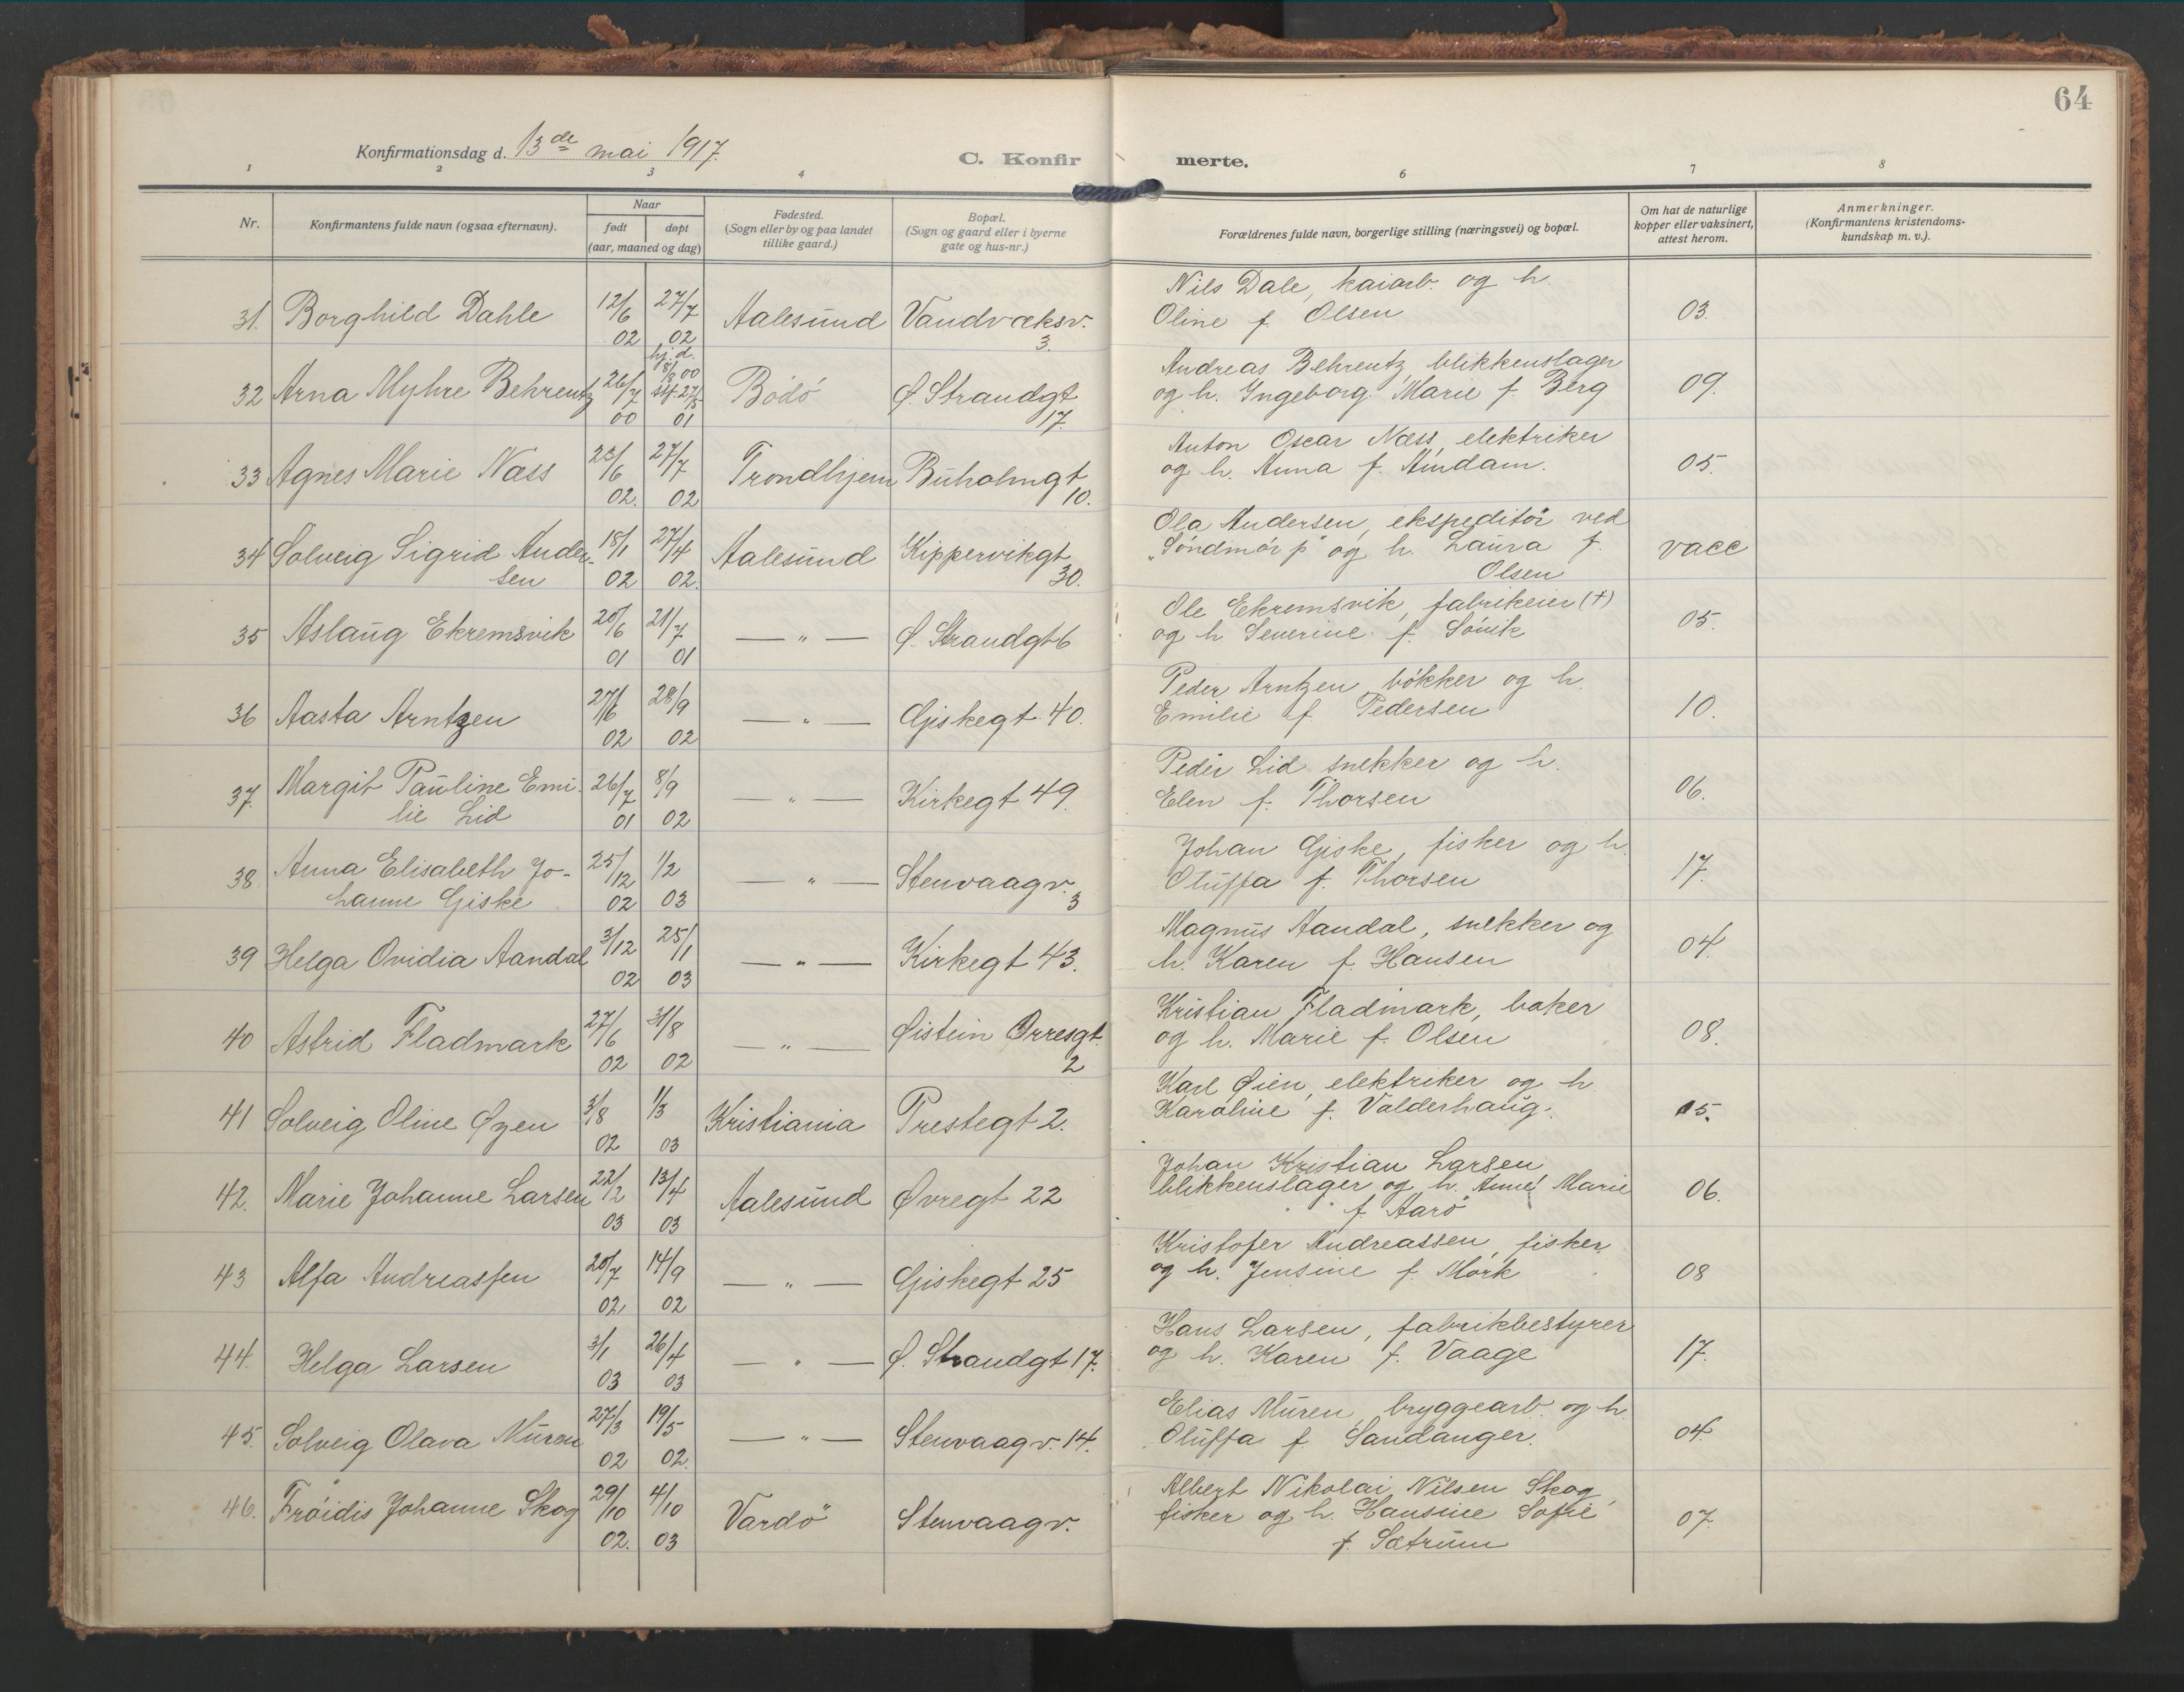 64
Konfirmationsdag d. 13de mai 1917.
C. Konfirmerte.
1 2 3 4 6 7 8
Nr. Konfirmantens fulde navn (ogsaa efternavn). Naar født døpt (aar, maaned og dag) Fødested. (Sogn eller by og paa landet tillike gaard.) Bopæl. (Sogn og gaard eller i byerne gate og hus-nr.) Forældrenes fulde navn, borgerlige stilling (næringsvei) og bopæl. Om hat de naturlige kopper eller vaksinert, attest herom. Anmerkninger. (Konfirmantens kristendomskundskap m. v.).
31. Borghild Dahle 12/6 02 27/7 02 Aalesund Vandværksv. 3. Nils Dale, kaiarb. og h. Oline f. Olsen 03.
32 Arna Myhre Behrentz 26/7 00 hj. d. 8/8 00 stf. 27/5 01 Bodö Ø. Strandgt 17. Andreas Behrentz, blikkenslager og h. Ingeborg Marie f. Berg 09.
33 Agnes Marie Næss 23/6 02. 27/7 02 Trondhjem Buholmgt 10. Anton Oscar Næss, elektriker og h. Anna f. Amdam. 05.
34 Solveig Sigrid Andersen 18/1 02 27/4 02. Aalesund Kippervikgt 30. Ola Andersen, ekspeditör ved "Söndmör p" og h. Laura f. Olsen vacc
35 Aslaug Ekremsvik 20/6 01 21/7 01 — " — Ø. Strandgt 6 Ole Ekremsvik, fabrikeier (†) og h Severine f. Sövik 05.
36 Aasta Arntzen 27/6 02 28/9 02 — " — Giskegt 40. Peder Arntzen, bökker og h. Emilie f. Pedersen 10.
37. Margit Pauline Emilie Lid 26/7 01 8/9 02 — " — Kirkegt 49. Peder Lid snekker og h. Elen f. Thorsen 06.
38. Anna Elisabeth Johanne Giske 25/12 02 1/2 03 — " — Stenvaagv. 3 Johan Giske, fisker og h. Oluffa f. Thorsen 17.
39 Helga Ovidia Aandal 3/12 02 25/1 03 — " — Kirkegt 43. Magnus Aandal, snekker og h. Karen f. Hansen 04.
40 Astrid Fladmark 27/6 02 31/8 02 — " — Øistein Orresgt. 2 Kristian Fladmark, baker og h. Marie f. Olsen 08.
41 Solveig Oline Øyen 3/8 02 1/3 03 Kristiania Prestegt 2. Karl Øien, elektriker og h Karoline f. Valderhaug. 05.
42. Marie Johanne Larsen 22/2 03 13/4 03 Aalesund Øvregt 22 Johan Kristian Larsen, blikkenslager og h. Anne Marie f. Aarö 06.
43 Alfa Andreassen 20/7 02 14/9 02 — " — Giskegt 25 Kristofer Andreassen, fisker og h. Jensine f. Mork 08
44. Helga Larsen 3/1 03 26/4 03 — " — Ø. Strandgt 17. Hans Larsen, fabrikbestyrer og h. Karen f. Vaage 17.
45. Solveig Olava Muren 27/3 02 19/5 02. — " — Stenvaagv. 14. Elias Muren, bryggearb. og h. Oluffa f. Sandanger. 04.
46. Fröidis Johanne Skog 29/10 02. 4/10 03 Vardö Stenvaagv. Albert Nikolai Nilsen Skog, fisker og h. Hansine Sofie f. Sætrum 07.